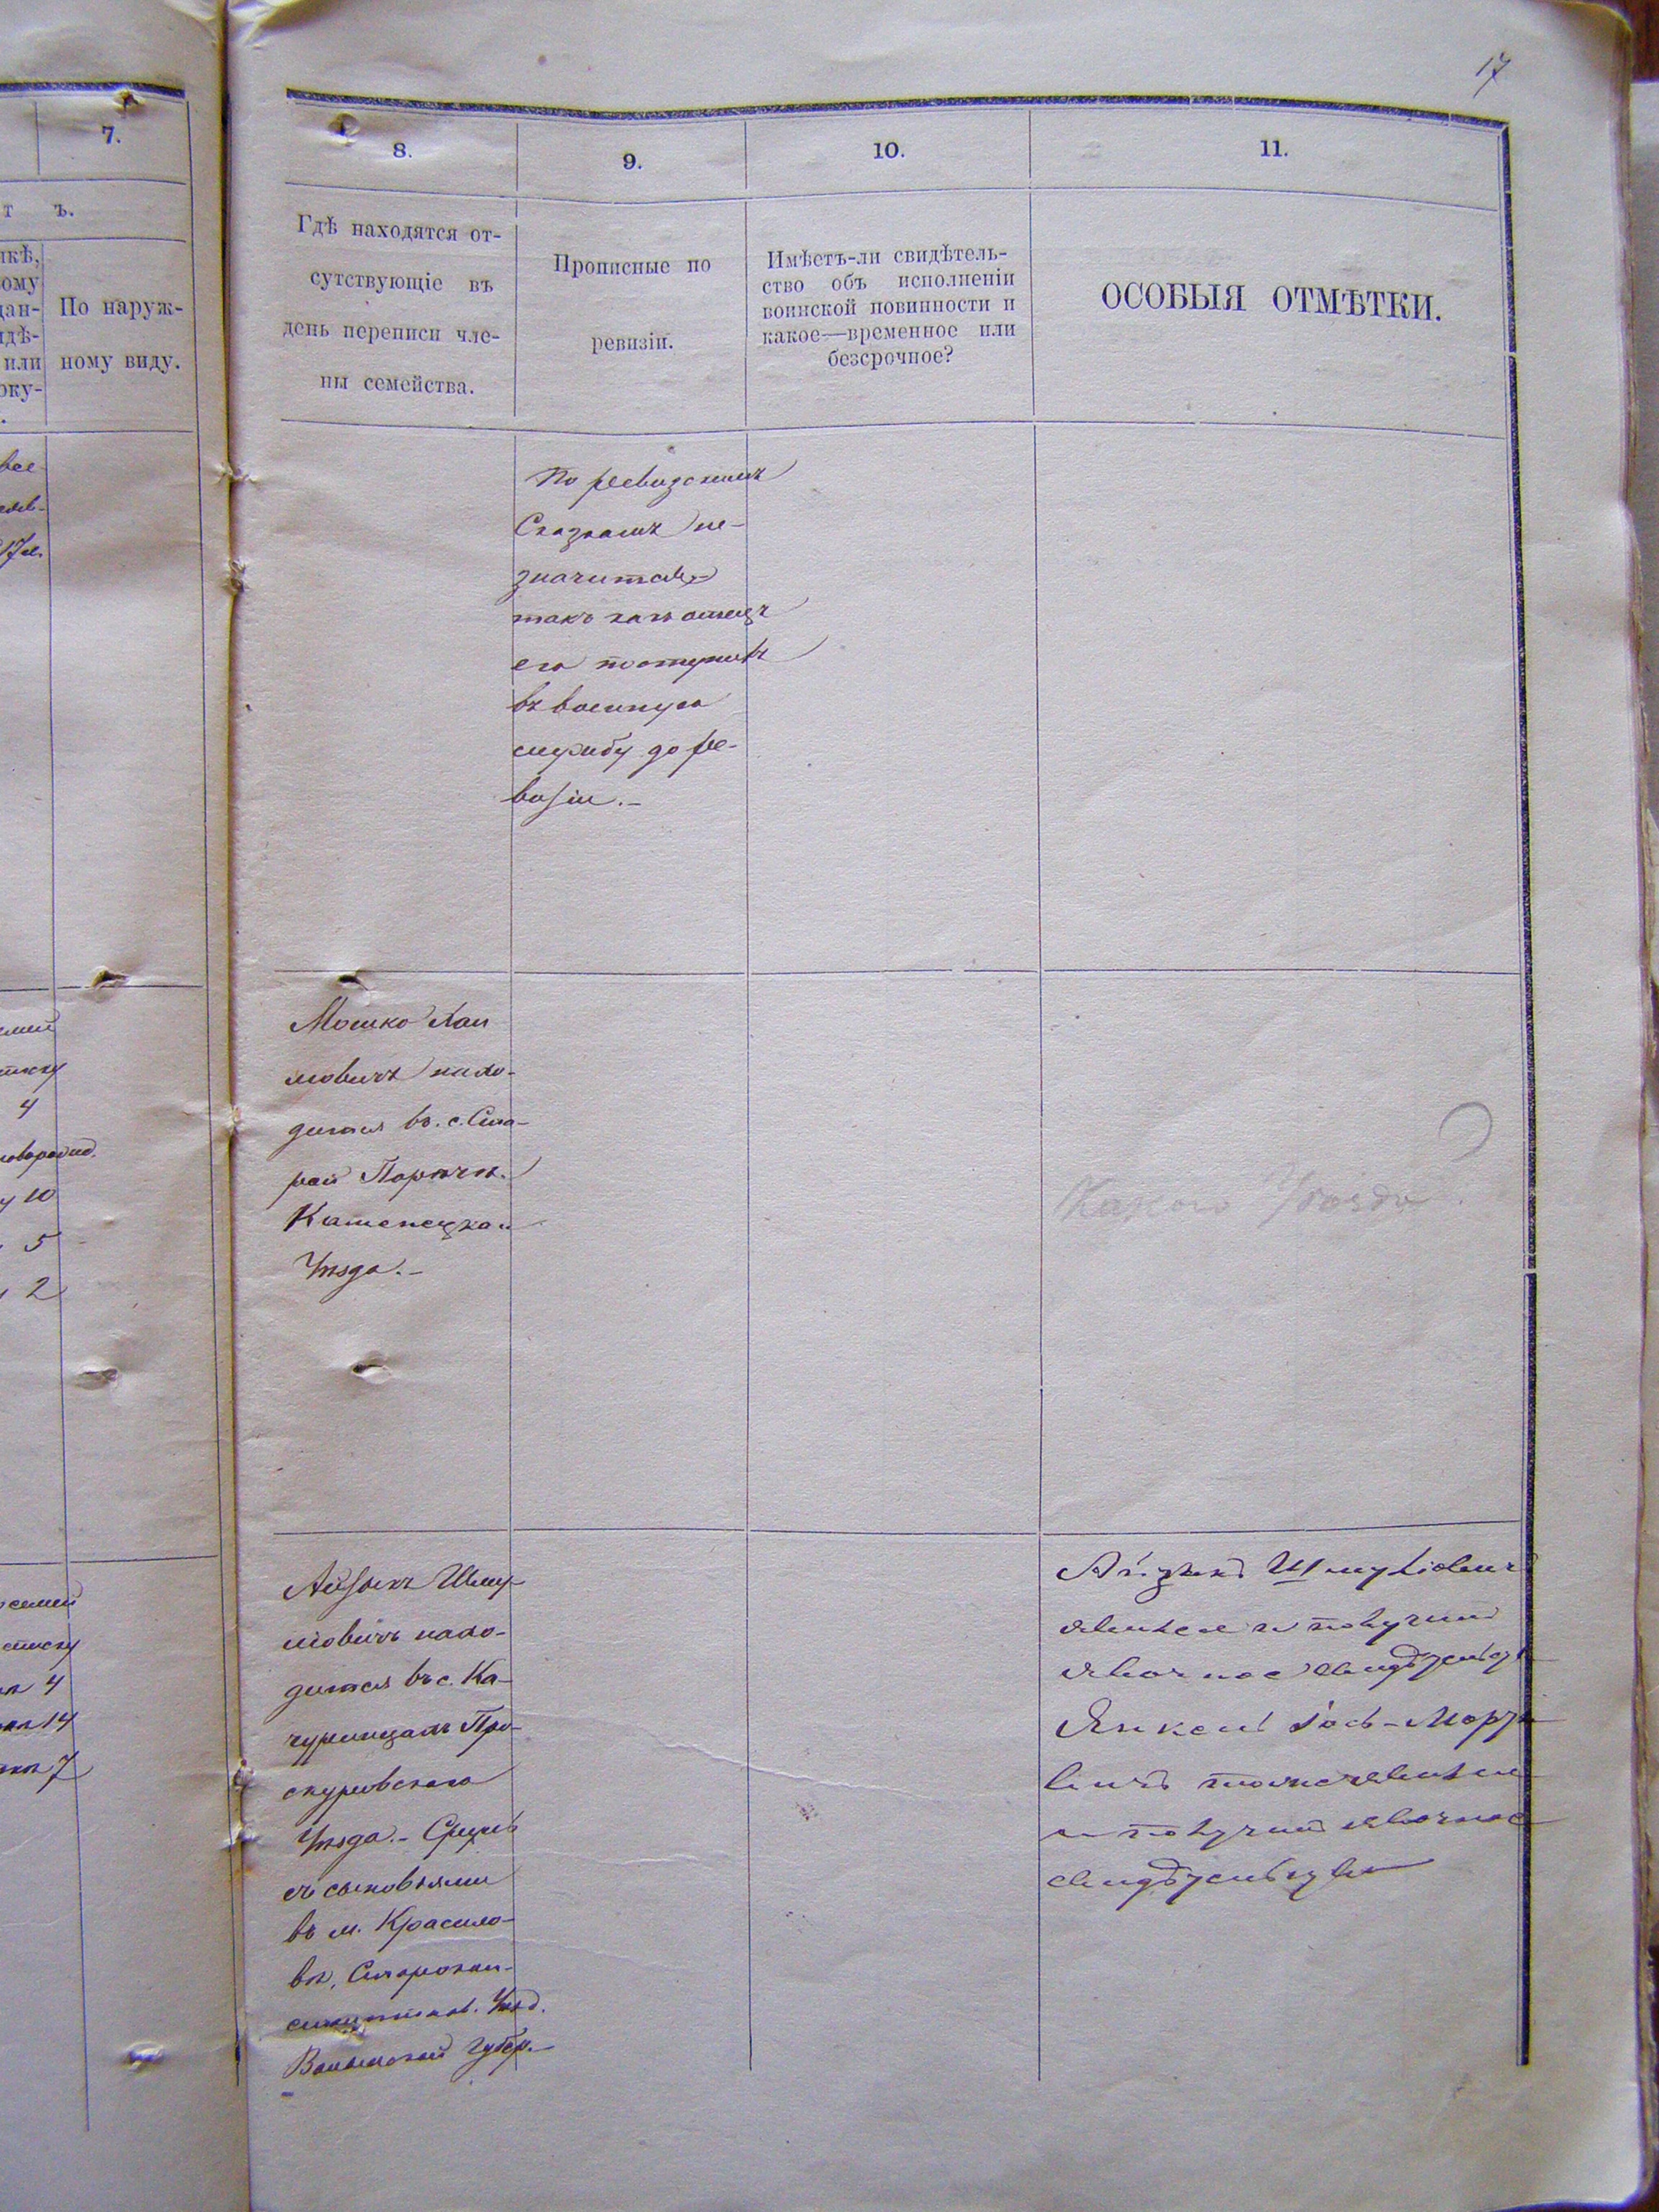 17
7.
т ъ.
По наруж-
ному виду.
8.
9.
10.
11.
Гдѣ находятся от-
сутствующіе въ
день переписи чле-
ны семейства.
Прописные по
ревизіи.
Имѣетъ-ли свидѣтель-
ство объ исполненіи
воинской повинности и
какое—временное или
безсрочное?
ОСОБЫЯ ОТМѢТКИ.
По ревизскимъ
Сказкамъ не-
значится
такъ какъ отецъ
его поступилъ
въ военную
службу до ре-
визіи.-
4
10
5
2
Мошко Хаи
мовичъ нахо-
дится въ с. Ста-
рой
Каменецкой
Уѣзда.-
Какого Уѣзда?
4
14
7
Айзыкъ Шму-
ліовичъ нахо-
дится въ с. Ка-
чуринцахъ Про-
скуровскаго
Уѣзда.- Срулъ
съ сыновьями
въ м. Красило-
вѣ, Старокон-
стантинов. Уѣзд.
Волынской губер.-
Айзикъ Шмуліовичъ
явился и получилъ
явочное свидѣтельство
Янкель Іось-Морд
вичъ тоже явился
и получилъ явочное
свидѣтельство